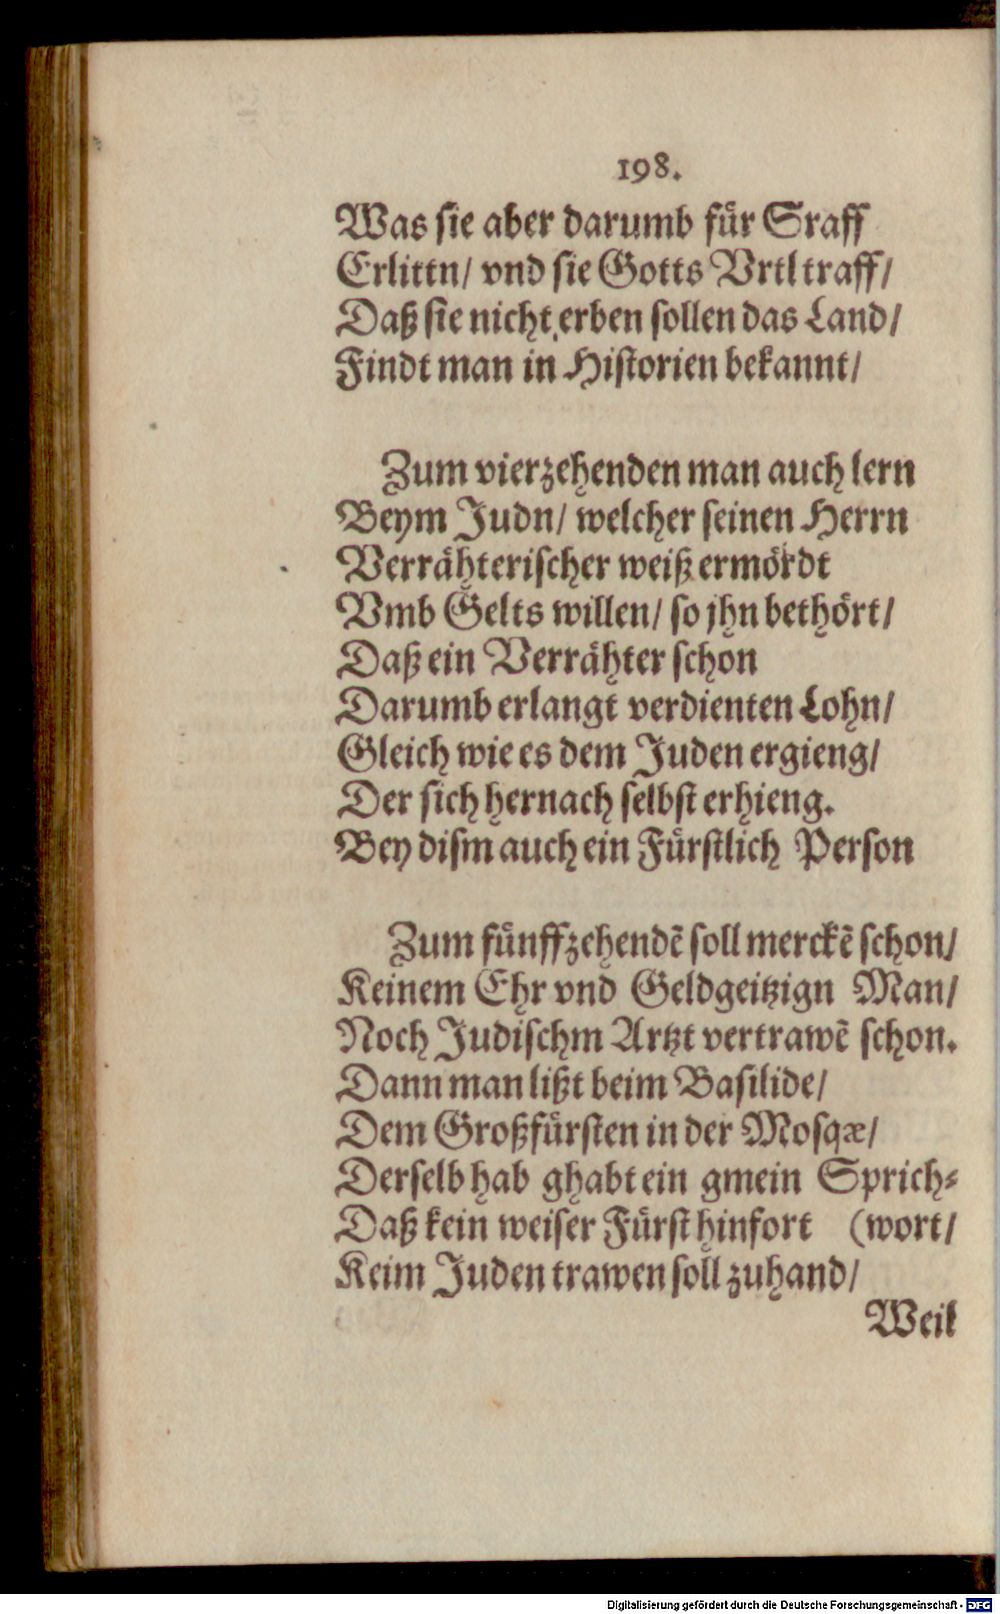 198.
Was sie aber darumb fuͤr Sraff
Erlittn/ vnd sie Gotts Vrtl traff/
Daß sie nicht erben sollen das Land/
Findt man in Historien bekannt/
Zum vierzehenden man auch lern
Beym Judn/ welcher seinen Herrn
Verraͤhterischer weiß ermoͤrdt
Vmb Gelts willen/ so jhn bethoͤrt/
Daß ein Verraͤhter schon
Darumb erlangt verdienten Lohn/
Gleich wie es dem Juden ergieng/
Der sich hernach selbst erhieng.
Bey dism auch ein Fuͤrstlich Person
Zum fuͤnffzehendẽ soll merckẽ schon/
Keinem Ehr vnd Geldgeitzign Man/
Noch Judischm Artzt vertrawẽ schon.
Dann man lißt beim Basilide/
Dem Großfuͤrsten in der Mosqæ/
Derselb hab ghabt ein gmein Sprich-
Daß kein weiser Fuͤrst hinfort (wort/
Keim Juden trawen soll zuhand/
Weil
Digitalisierung gefördert durch die Deutsche Forschungsgemeinschaft - DFG